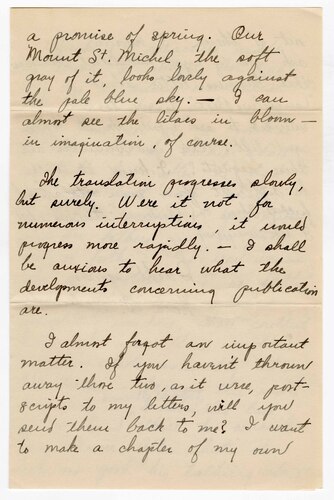 a promise of spring. Our
Mount St. Michel, the soft
gray of it, looks lovely against
the pale blue sky. — I can
almost see the lilacs in bloom —
in imagination, of course.
The translation progresses slowly,
but surely. Were it not for
numerous interruptions, it would
progress more rapidly. — I shall
be anxious to hear what the
developments concerning publication
are.
I almost forgot an important
matter. If you haven't thrown
away those two, as it were, post-
scripts to my letters, will you
send them back to me? I want
to make a chapter of my own